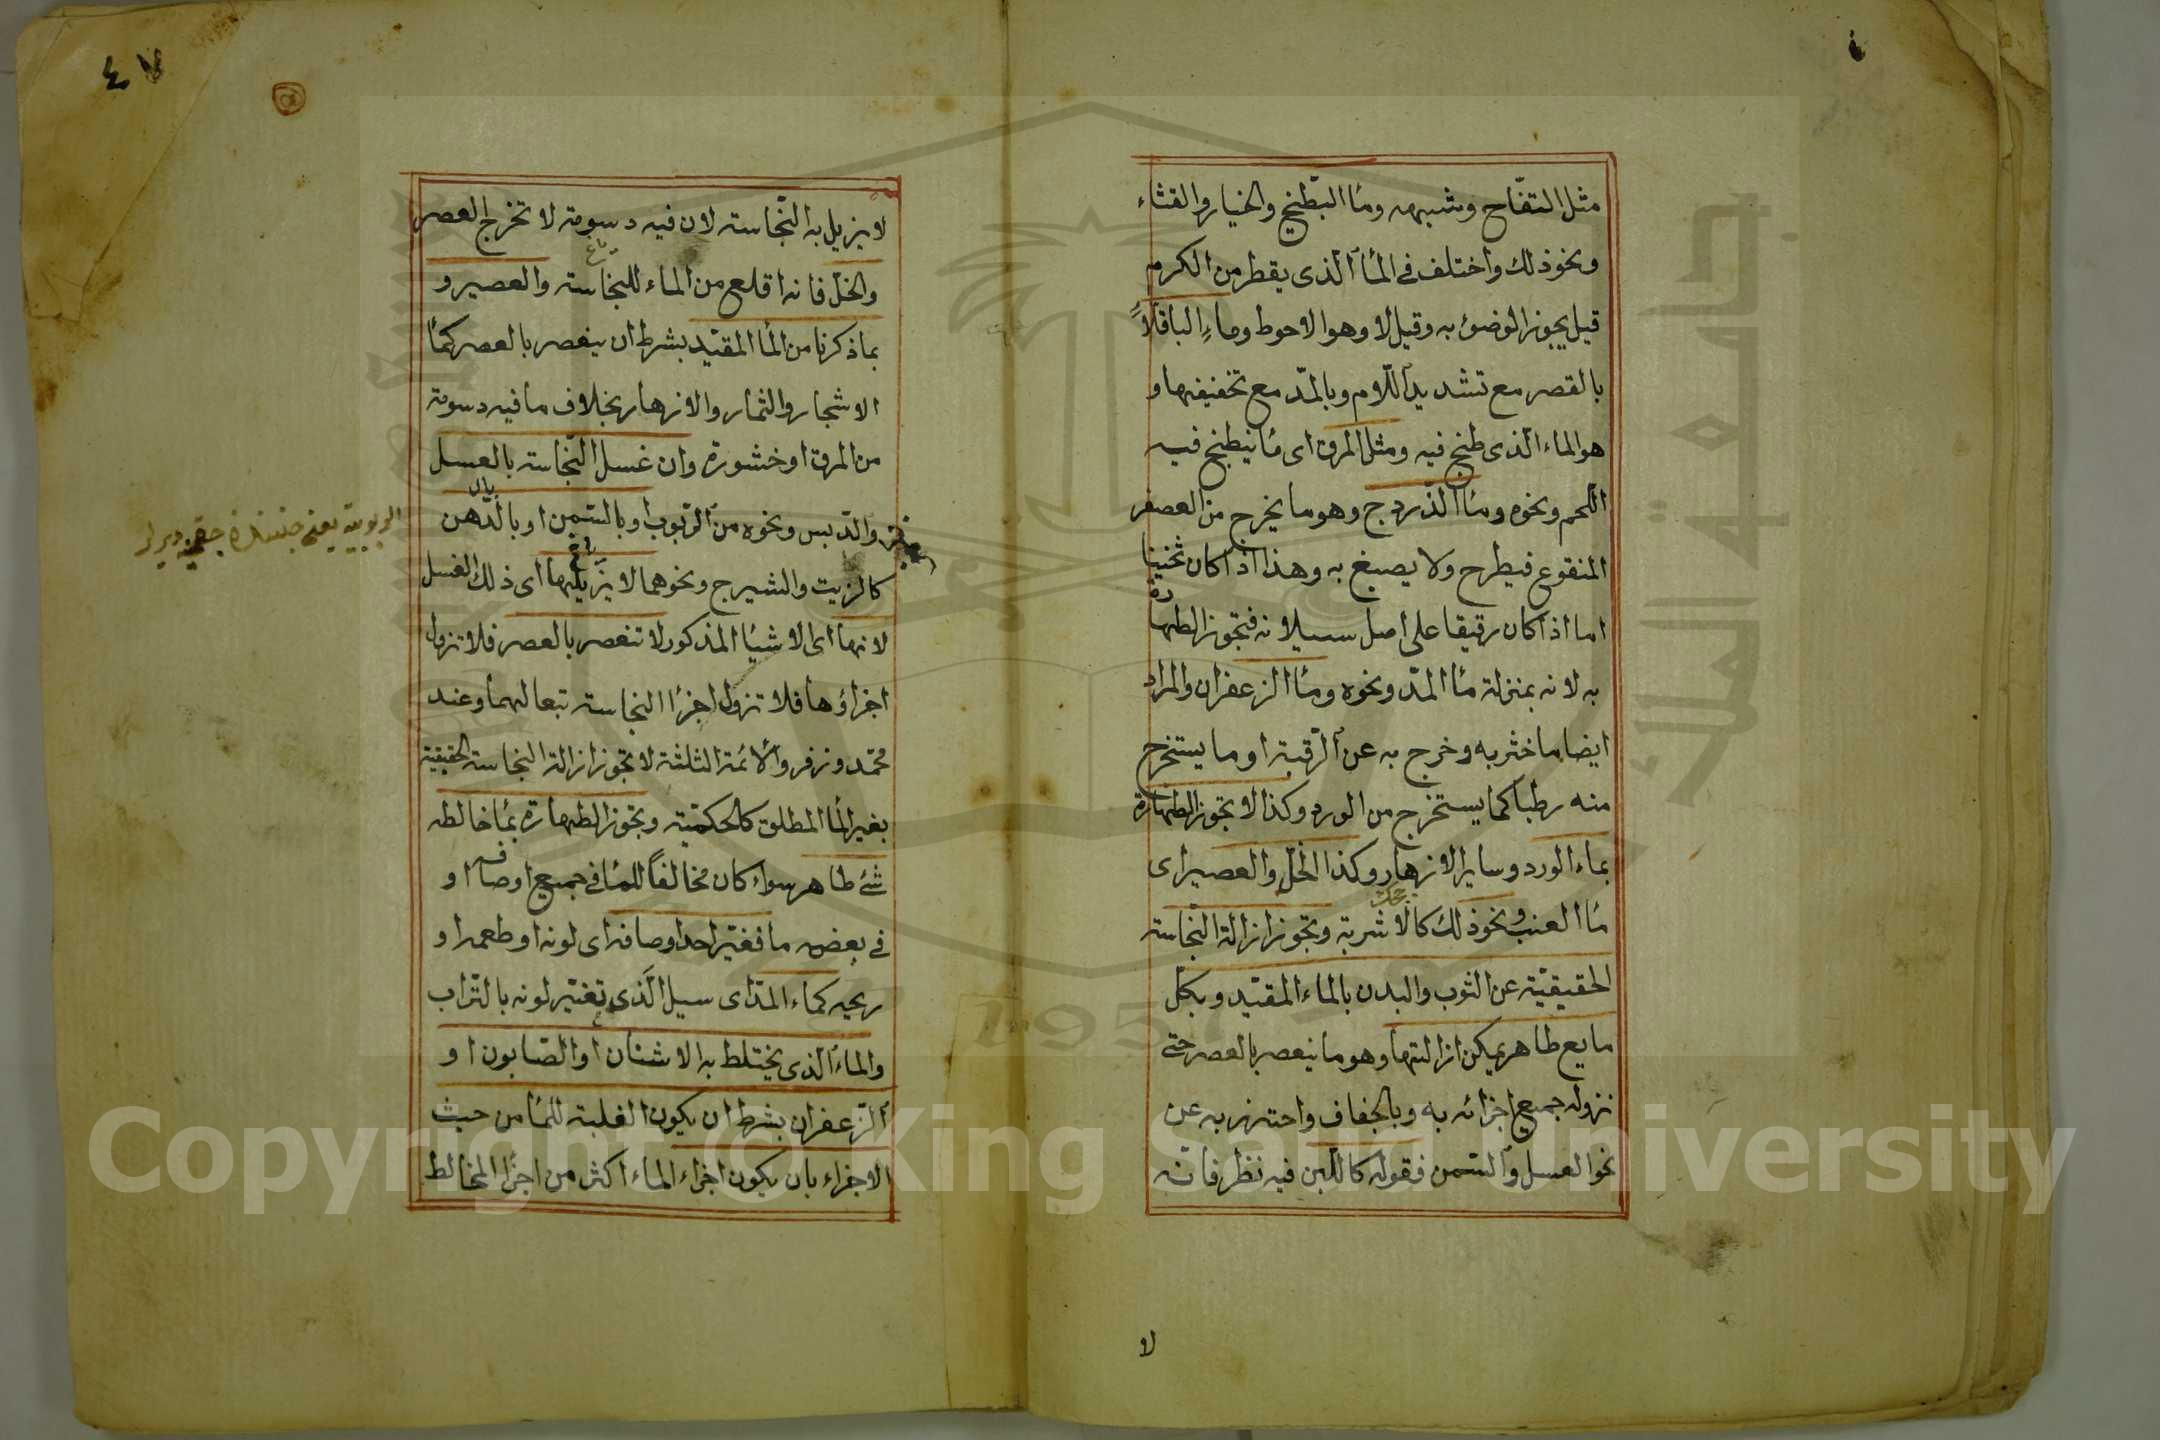 مثل التفّاح وشبهه وماء البطّيخ والخيار والقثاء
ونحو ذلك واختلف فى الماء الذى يقطر من الكرم
قيل يجوز الوضوء به وقيل لا وهو الاحوط وماء الباقلاّ
بالقصر مع تشديد اللّام وبالمدّ مع تخفيفها و
هو الماء الذى طبخ فيه ومثل المرق اى ما ينطبخ فيه
اللحم ونحوه وماء الذّردج وهو ما يخرج من العصفر
المنقوع فيطرح ولا يصبغ به وهذا اذا كان ثخينا
اما اذا كان رقيقا على اصل سيلانه فتجوز الطهارة
به لانه بمنزلة ماء المدّ ونحوه وماء الزعفران والمراد
ايضا ما خثر به وخرج به عن الرّقة او ما يستخرج
منه رطبا كما يستخرج من الورد وكذا لا تجوز الطهارة
بماء الورد وساير الازهار وكذا الخلّ والعصير اى
ماء العنب ونحو ذلك كالاشربة وتجوز ازالة النّجاسة
الحقيقيّة عن الثوب والبدن بالماء المقيّد وبكل
مايع طاهر يمكن ازالتها وهو ما ينعصر بالعصر حتى
تزول جميع اجزائه به وبالجفاف واحترز به عن
نحو العسل والسّمن فقوله كاللّبن فيه نظر فانّه
لا
٤٧
لا يزيل به النّجاسة لان فيه دسومة لا تخرج العصر
والخلّ فانه اقلع من الماء للنجاسة والعصير و
بما ذكرنا من الماء المقيّد بشرط ان ينعصر بالعصر كماء
الاشجار والثمار والازهار بخلاف ما فيه دسومة
من المرق او خشورة وان غسل النّجاسة بالعسل
والدّبس ونحوه من الرّبوب او بالسّمن او بالدّهن
كالزيت والشيرج ونحوهما لا يزيلها اى ذلك الغسل
لانها اى الاشياء المذكور لا تنعصر بالعصر فلا تزول
اجزاؤها فلا تزول اجزاء النجاسة تبعا لهما وعند
محمّد وزفر والائمة الثلثة لا تجوز ازالة النجاسة الحقيقية
بغير الماء المطلق كالحكميّة وتجوز الطهارة بماء خالطه
شئ طاهر سواء كان مخالفاً للماء فى جميع اوصافه او
فى بعضه ما فغيّر احد اوصافه اى لونه او طعمه او
ريحه كماء المدّ اى سيل الّذى تغيّر لونه بالتّراب
والماء الّذى يختلط به الاشنان او الصّابون او
الزّعفران بشرط ان يكون الغلبة للماء من حيث
الاجزاء بان يكون اجزاء الماء اكثر من اجزاء المخالط
Copyright © King Saud University
1957
جامعة الملك سعود